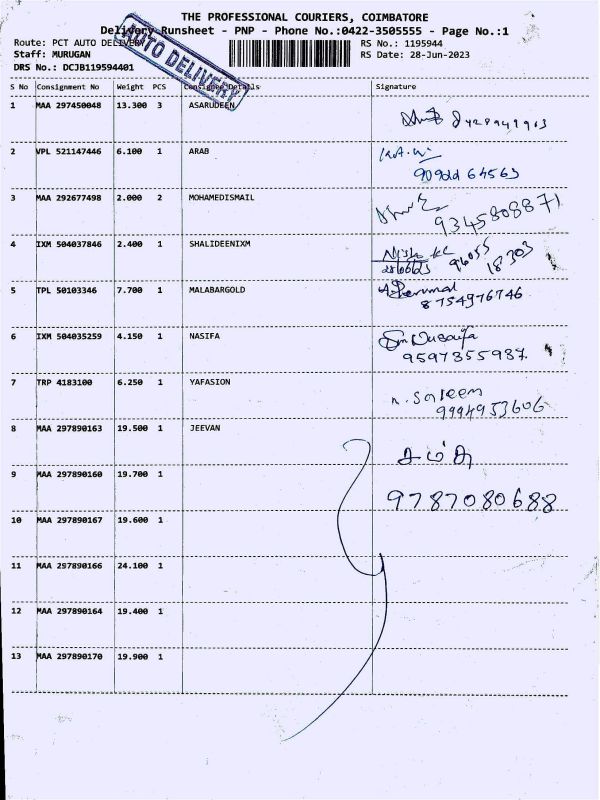 THE PROFESSIONAL COURIERS, COIMBATORE
Delivery Runsheet - PNP - Phone No.:0422-3505555 - Page No.:1
Route: PCT AUTO DELIVERY
RS No.: 1195944
Staff: MURUGAN
RS Date: 28-Jun-2023
DRS No.: DCJB119594401
AUTO DELIVERY
S No Consignment No Weight PCS Consignee Details Signature
1 MAA 297450048 13.300 3 ASARUDEEN
2 VPL 521147446 6.100 1 ARAB
64563
3 MAA 292677498 2.000 2 MOHAMEDISMAIL
9345808871
4 IXM 504037846 2.400 1 SHALIDEENIXM
96055
18303
5 TPL 50103346 7.700 1 MALABARGOLD
8754976746
6 IXM 504035259 4.150 1 NASIFA
9597355987
7 TRP 4183100 6.250 1 YAFASION
9994953606
8 MAA 297890163 19.500 1 JEEVAN
9 MAA 297890160 19.700 1
9787080688
10 MAA 297890167 19.600 1
11 MAA 297890166 24.100 1
12 MAA 297890164 19.400 1
13 MAA 297890170 19.900 1